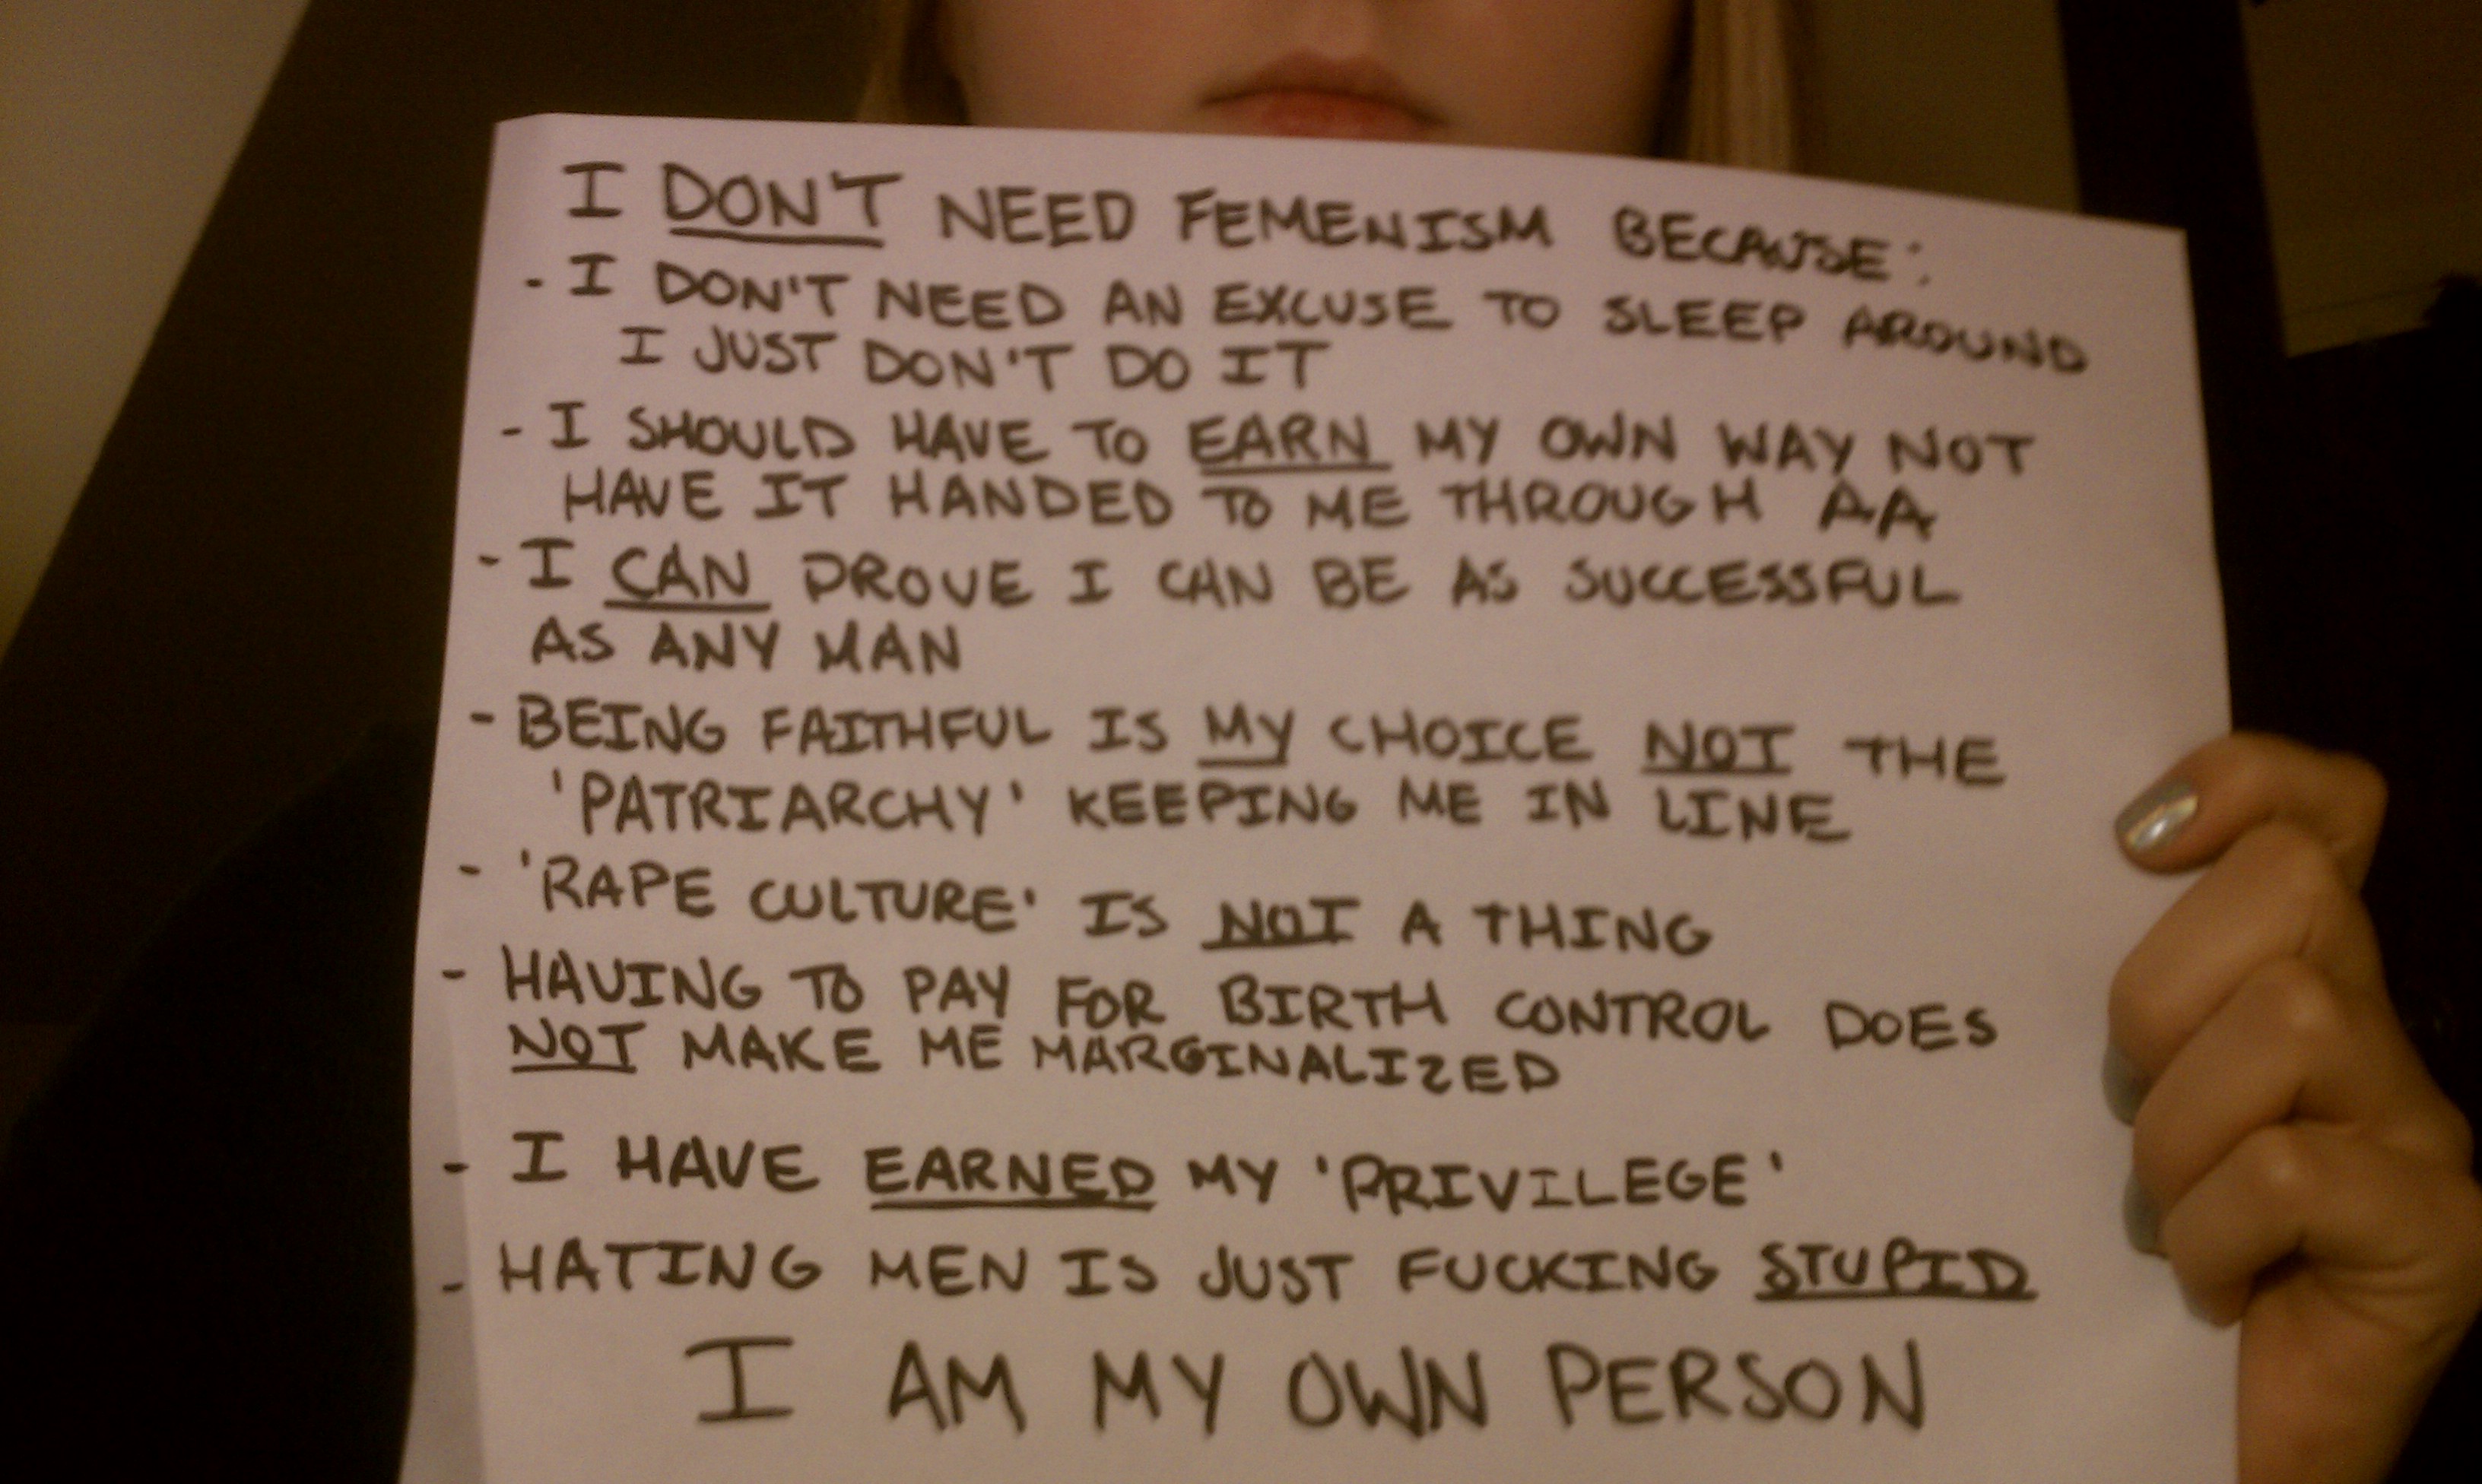 I DON'T NEED FEMENISM BECAUSE:
- I DON'T NEED AN EXCUSE TO SLEEP AROUND
I JUST DON'T DO IT
- I SHOULD HAVE TO EARN MY OWN WAY NOT
HAVE IT HANDED TO ME THROUGH AA
- I CAN PROVE I CAN BE AS SUCCESSFUL
AS ANY MAN
- BEING FAITHFUL IS MY CHOICE NOT THE
'PATRIARCHY' KEEPING ME IN LINE
- 'RAPE CULTURE' IS NOT A THING
- HAVING TO PAY FOR BIRTH CONTROL DOES
NOT MAKE ME MARGINALIZED
- I HAVE EARNED MY 'PRIVILEGE'
- HATING MEN IS JUST FUCKING STUPID
I AM MY OWN PERSON